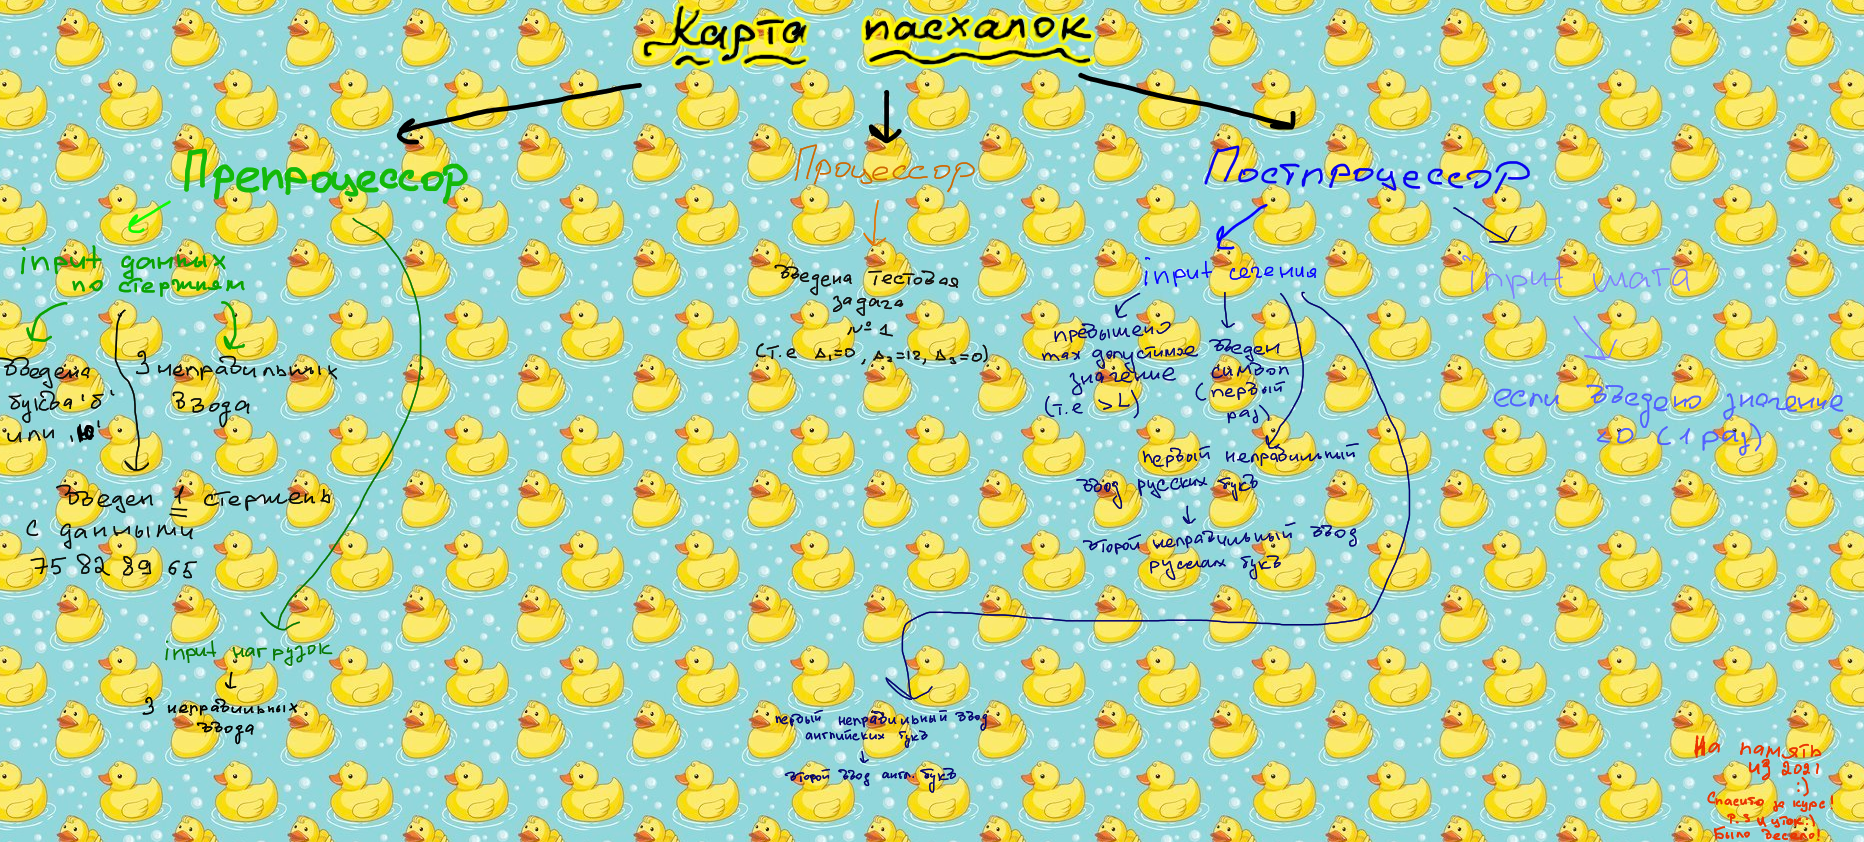 Карта пасхалок
Препроцессор
input данных
по стержням
Введена
буква 'б'
или 'ю'
3 неправильных
ввода
Введен 1 стержень
с данными
75 82 89 65
input нагрузок
3 неправильных
ввода
Процессор
Введена тестовая
задача
№ 1
(т.е Δ₁=0, Δ₂=12, Δ₃=0)
Постпроцессор
input сечения
превышено
max допустимое
значение
(т.е >L)
Введен
символ
(первый
раз)
первый неправильный
ввод русских букв
второй неправильный ввод
русских букв
первый неправильный ввод
английских букв
второй ввод англ. букв
input шага
если введено значение
<0 (1 раз)
На память
из 2021
:)
Спасибо за курс!
P.S и уток:)
Было весело!